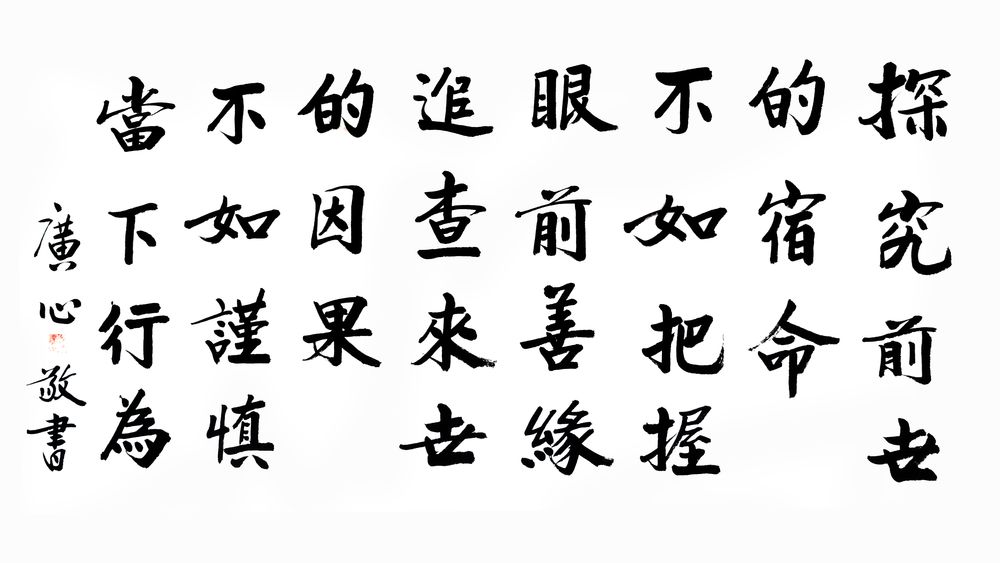 探究前世
的宿命
不如把握
眼前善緣
追查來世
的因果
不如謹慎
當下行為
廣心敬書